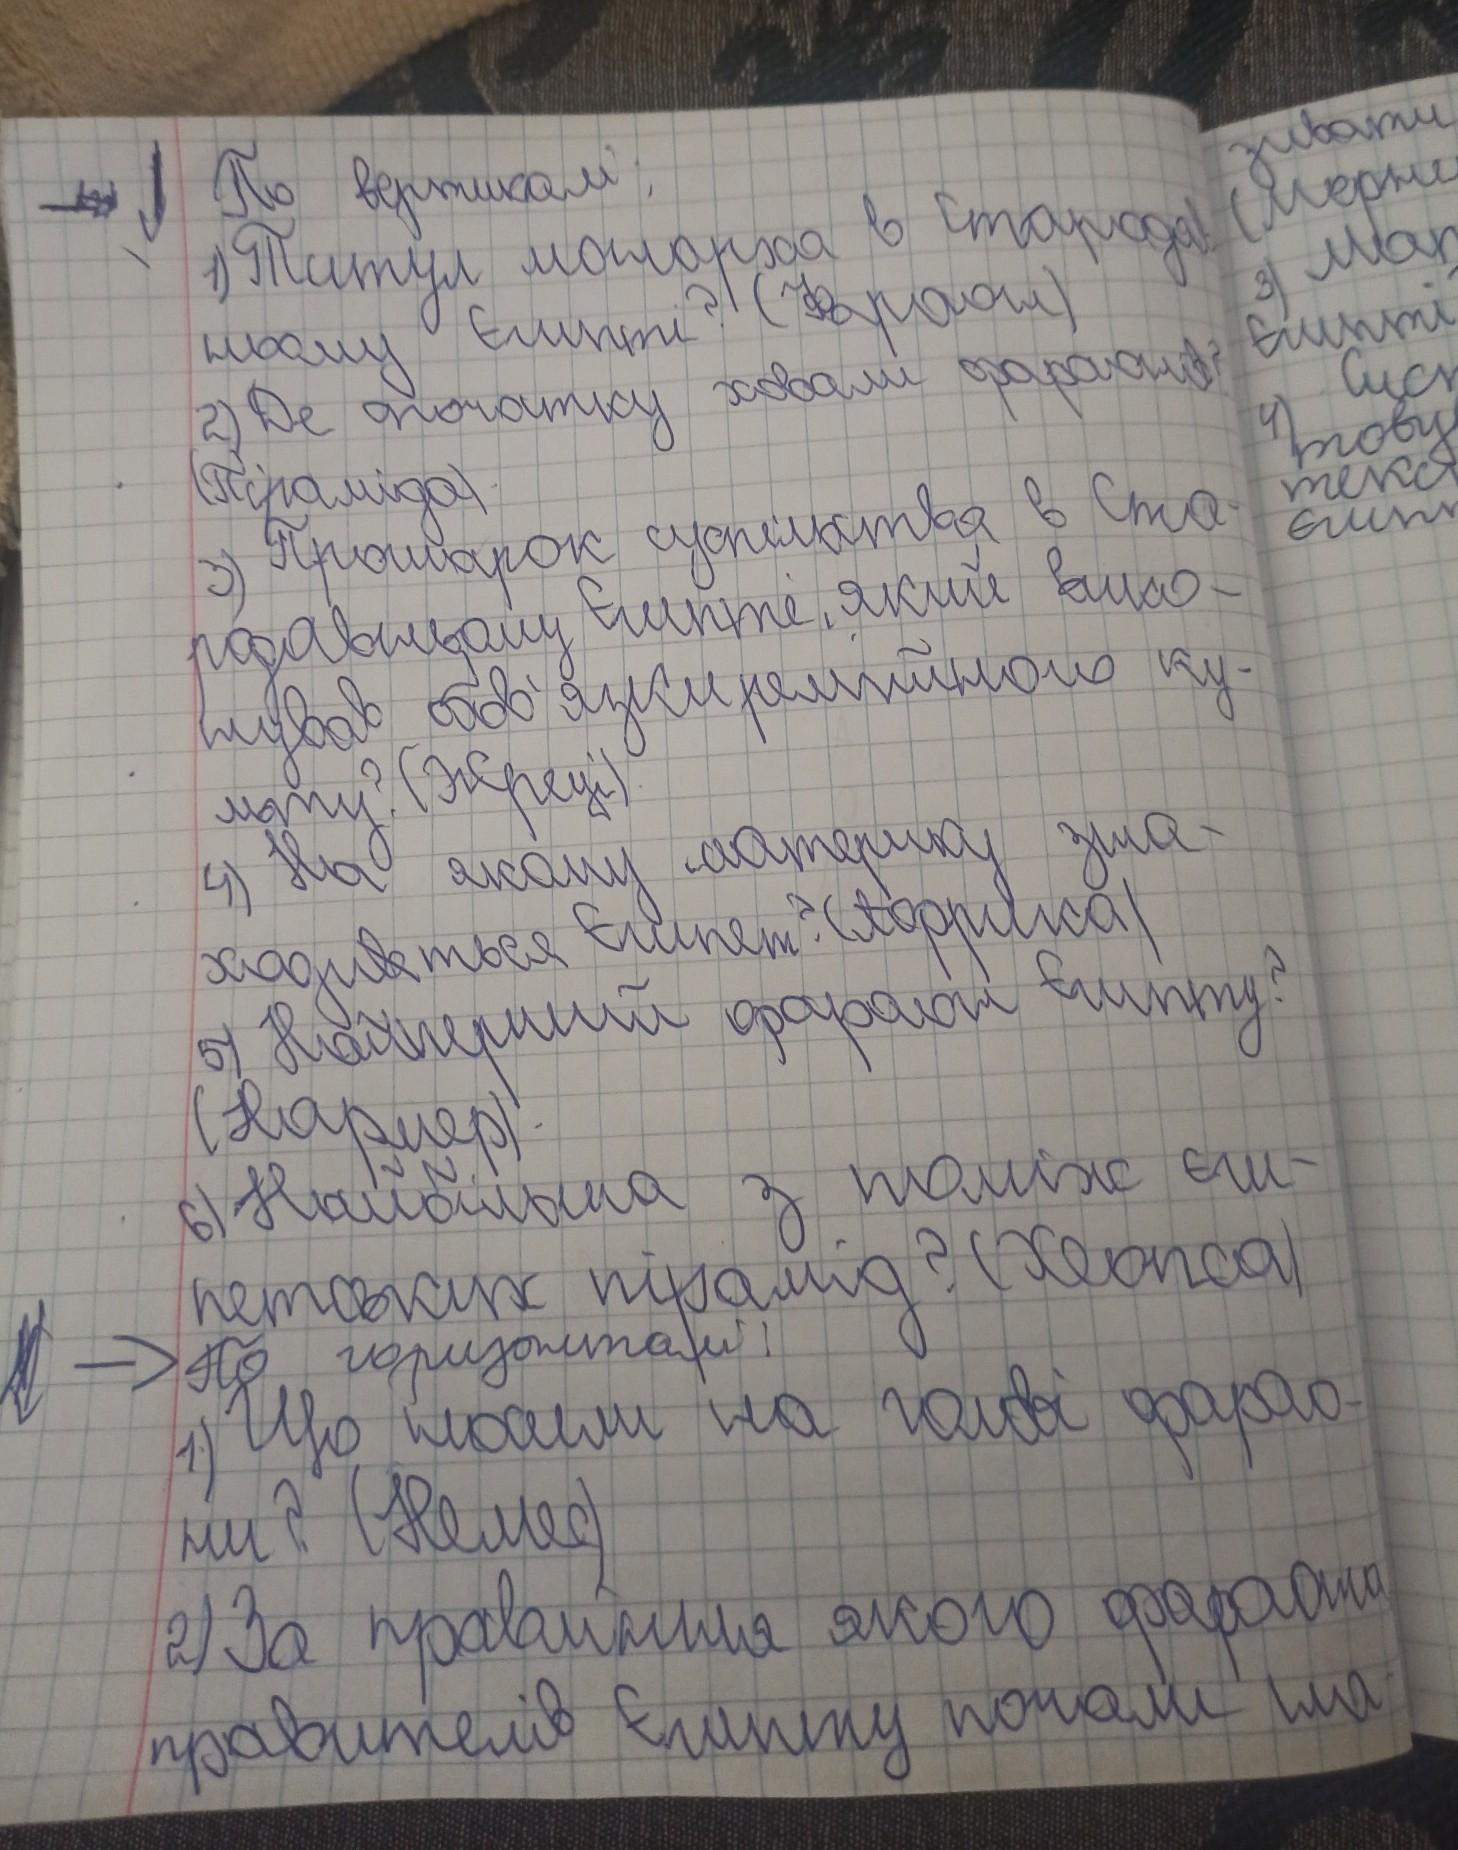 По вертикалі:
1) Титул монарха в Старода-
ньому Єгипті? (Фараон)
2) Де спочатку ховали фараонів?
(Піраміда).
3) Прошарок суспільства в Ста-
родавньому Єгипті, який вико-
нував обов'язки релігійного ку-
льту? (Жреці).
4) На якому материку зна-
ходиться Єгипет? (Африка)
5) Найперший фараон Єгипту?
(Нармер).
6) Найбільша з поміж єги-
петських пірамід? (Хеопса)
По горизонталі:
1) Що носили на голові фарао-
ни? (Немес)
2) За правління якого фараона
правителів Єгипту почали на-
зивати
3)
Єгипті
4)